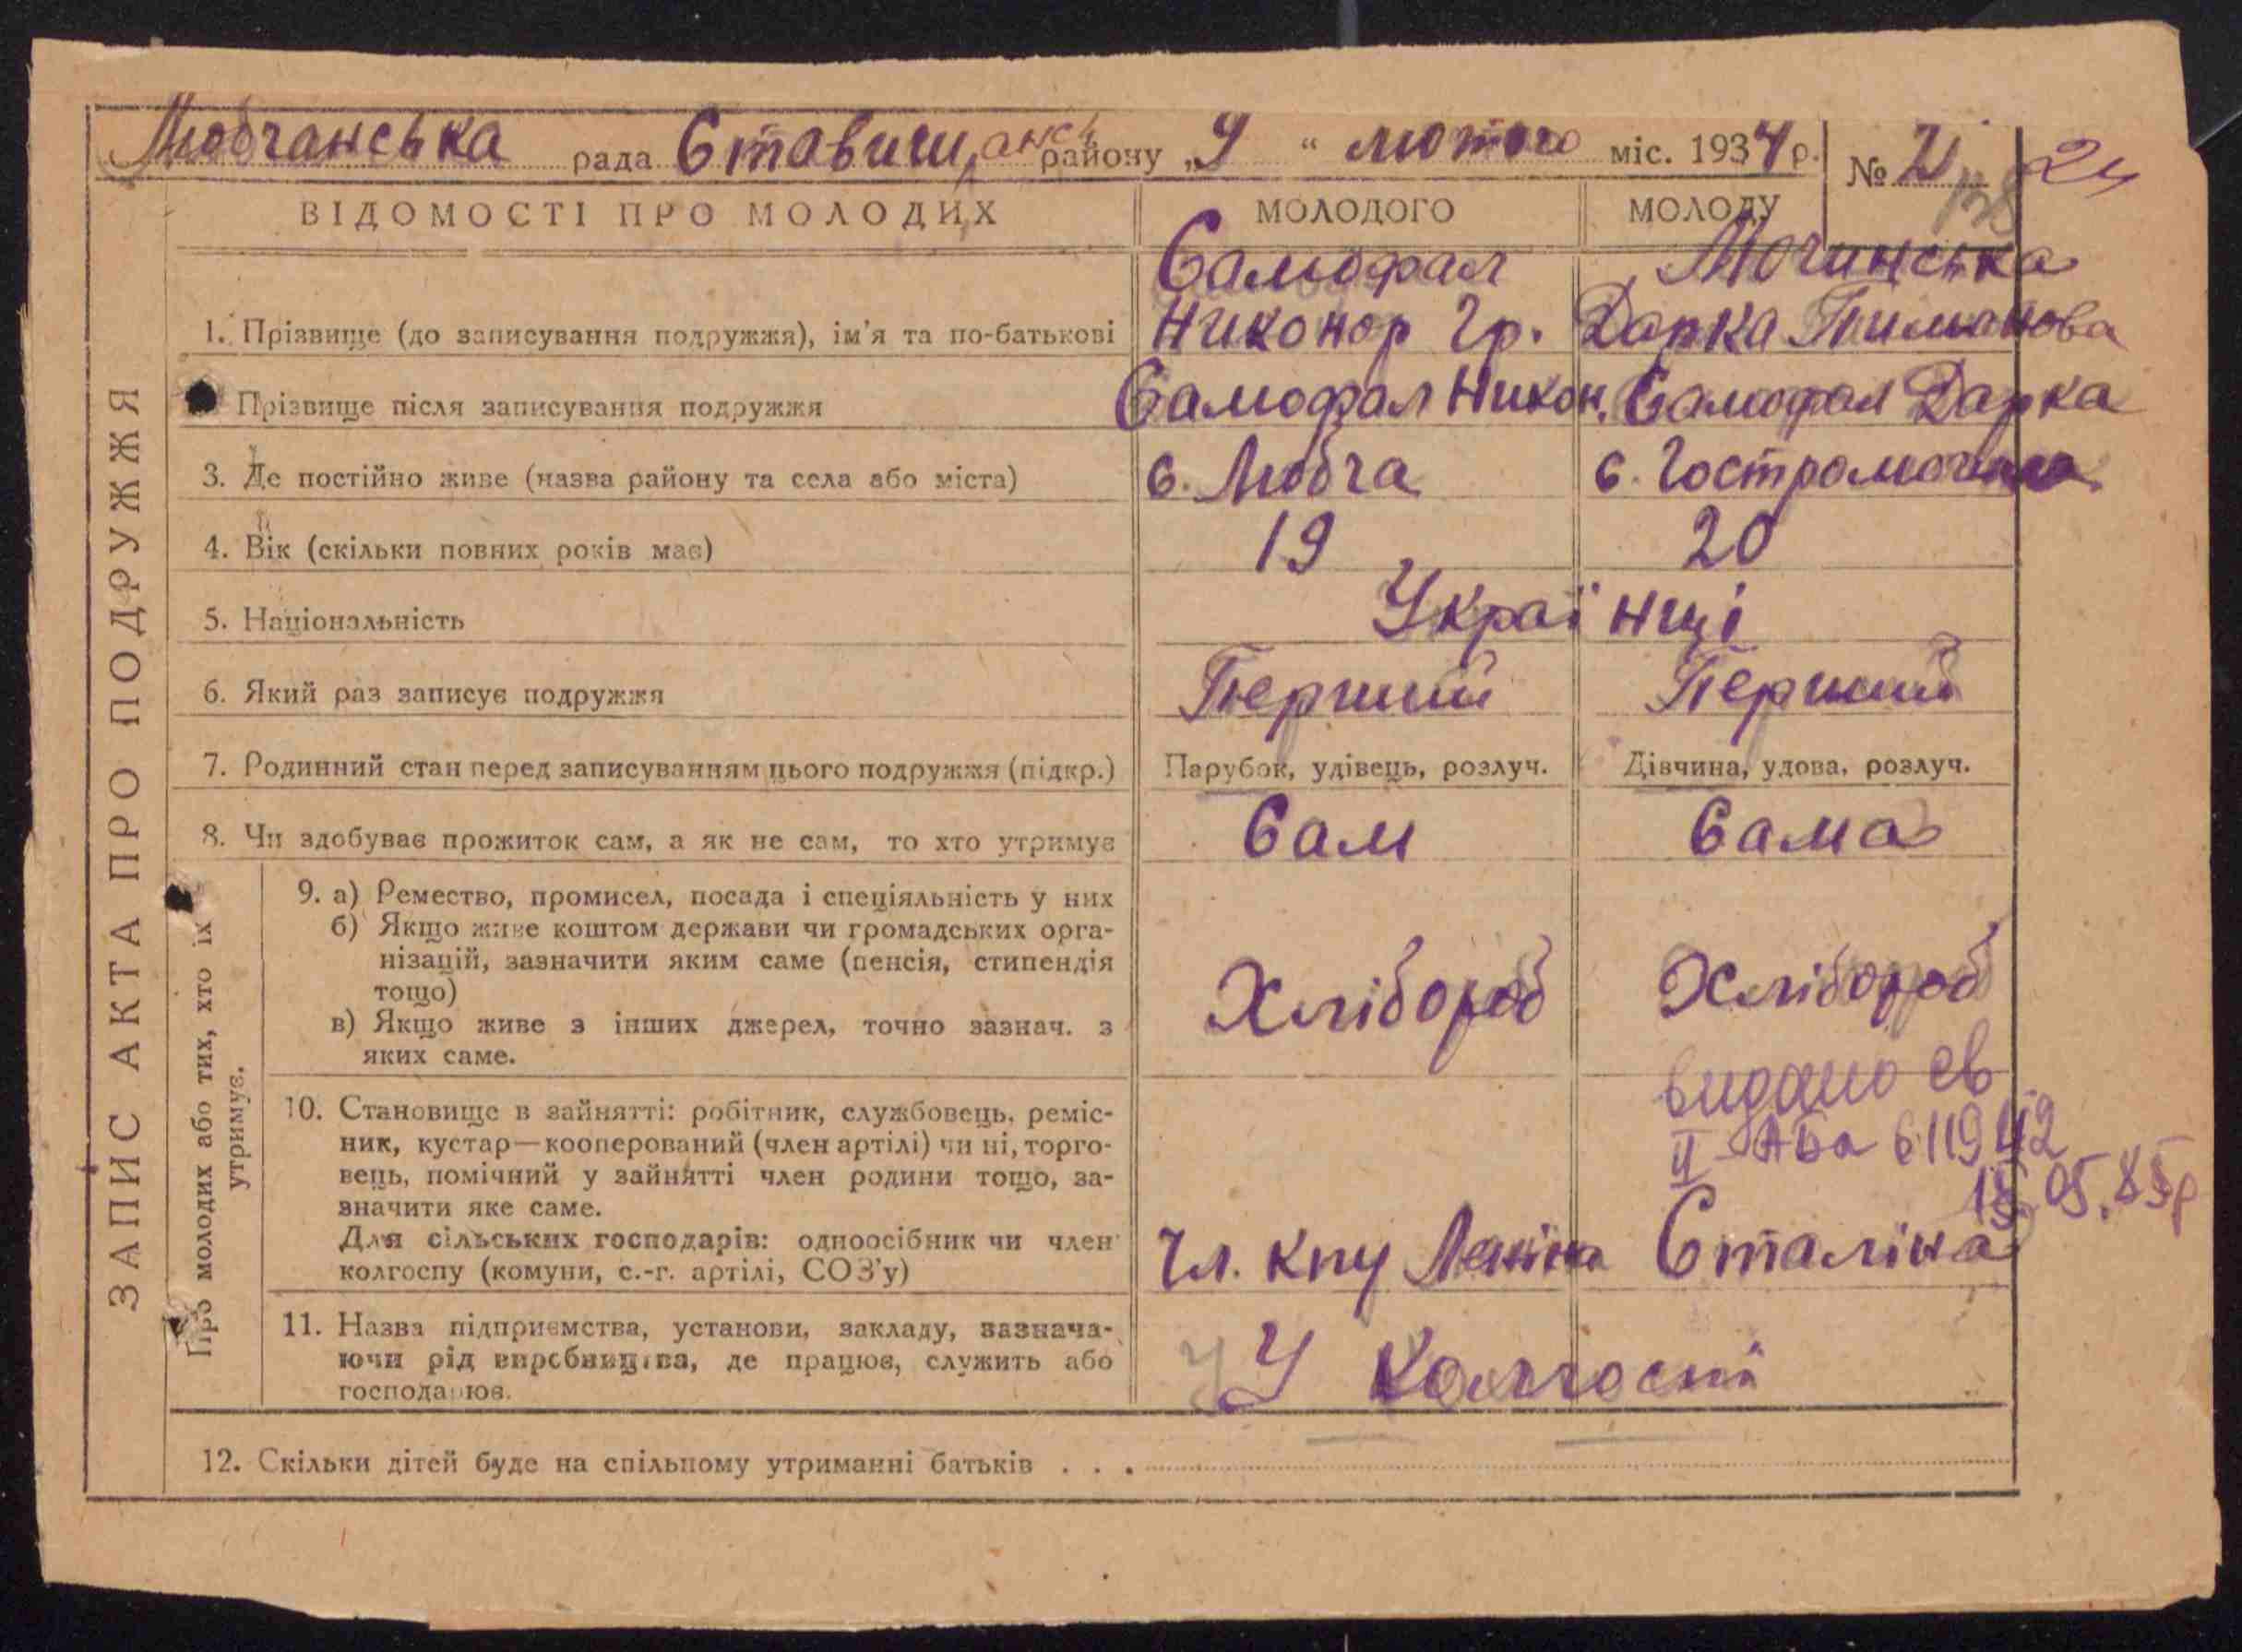 Любчанська рада Ставищанськ району „9" лютого міс. 1934 р. № 21 24
ВІДОМОСТІ ПРО МОЛОДИХ МОЛОДОГО МОЛОДУ
Самофал Мочинська
1. Прізвище (до записування подружжя), ім'я та по-батькові Никонор Гр. Дарка Тиманова
Прізвище після записування подружжя Самофал Никон. Самофал Дарка
3. Де постійно живе (назва району та села або міста) с. Любча с.
4. Вік (скільки повних років має) 19 20
5. Національність Українці
6. Який раз записує подружжя Перший Перший
7. Родинний стан перед записуванням цього подружжя (підкр.) Парубок, удівець, розлуч. Дівчина, удова, розлуч.
8. Чи здобуває прожиток сам, а як не сам, то хто утримує Сам Сама
9. а) Ремество, промисел, посада і спеціяльність у них
б) Якщо живе коштом держави чи громадських орга-
нізацій, зазначити яким саме (пенсія, стипендія
тощо)
в) Якщо живе з інших джерел, точно зазнач. з
яких саме.
Хлібороб Хлібороб
видано св
ІІ-АБа 611942
15.05.85р
10. Становище в зайнятті: робітник, службовець, реміс-
ник, кустар—кооперований (член артілі) чи ні, торго-
вець, помічний у зайнятті член родини тощо, за-
значити яке саме.
Для сільських господарів: одноосібник чи член
колгоспу (комуни, с.-г. артілі, СОЗ'у)
Чл. кпу Леніна Сталіна
11. Назва підприємства, установи, закладу, зазнача-
ючи рід виробництва, де працює, служить або
господарює.
У Колгоспі
12. Скільки дітей буде на спільному утриманні батьків . . .
ЗАПИС АКТА ПРО ПОДРУЖЖЯ
Про молодих або тих, хто їх
утримує.